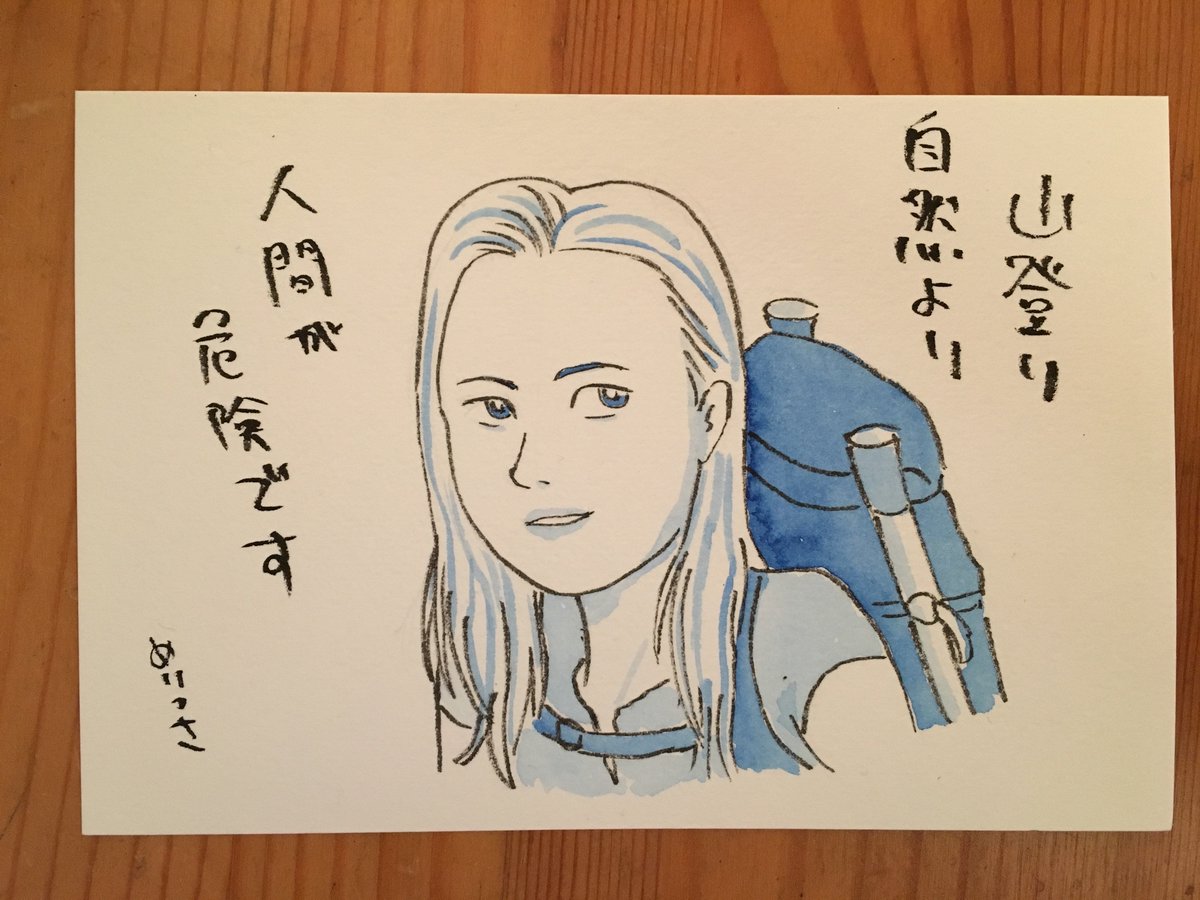 山登り
自然より
人間が
危険です
めこっさ